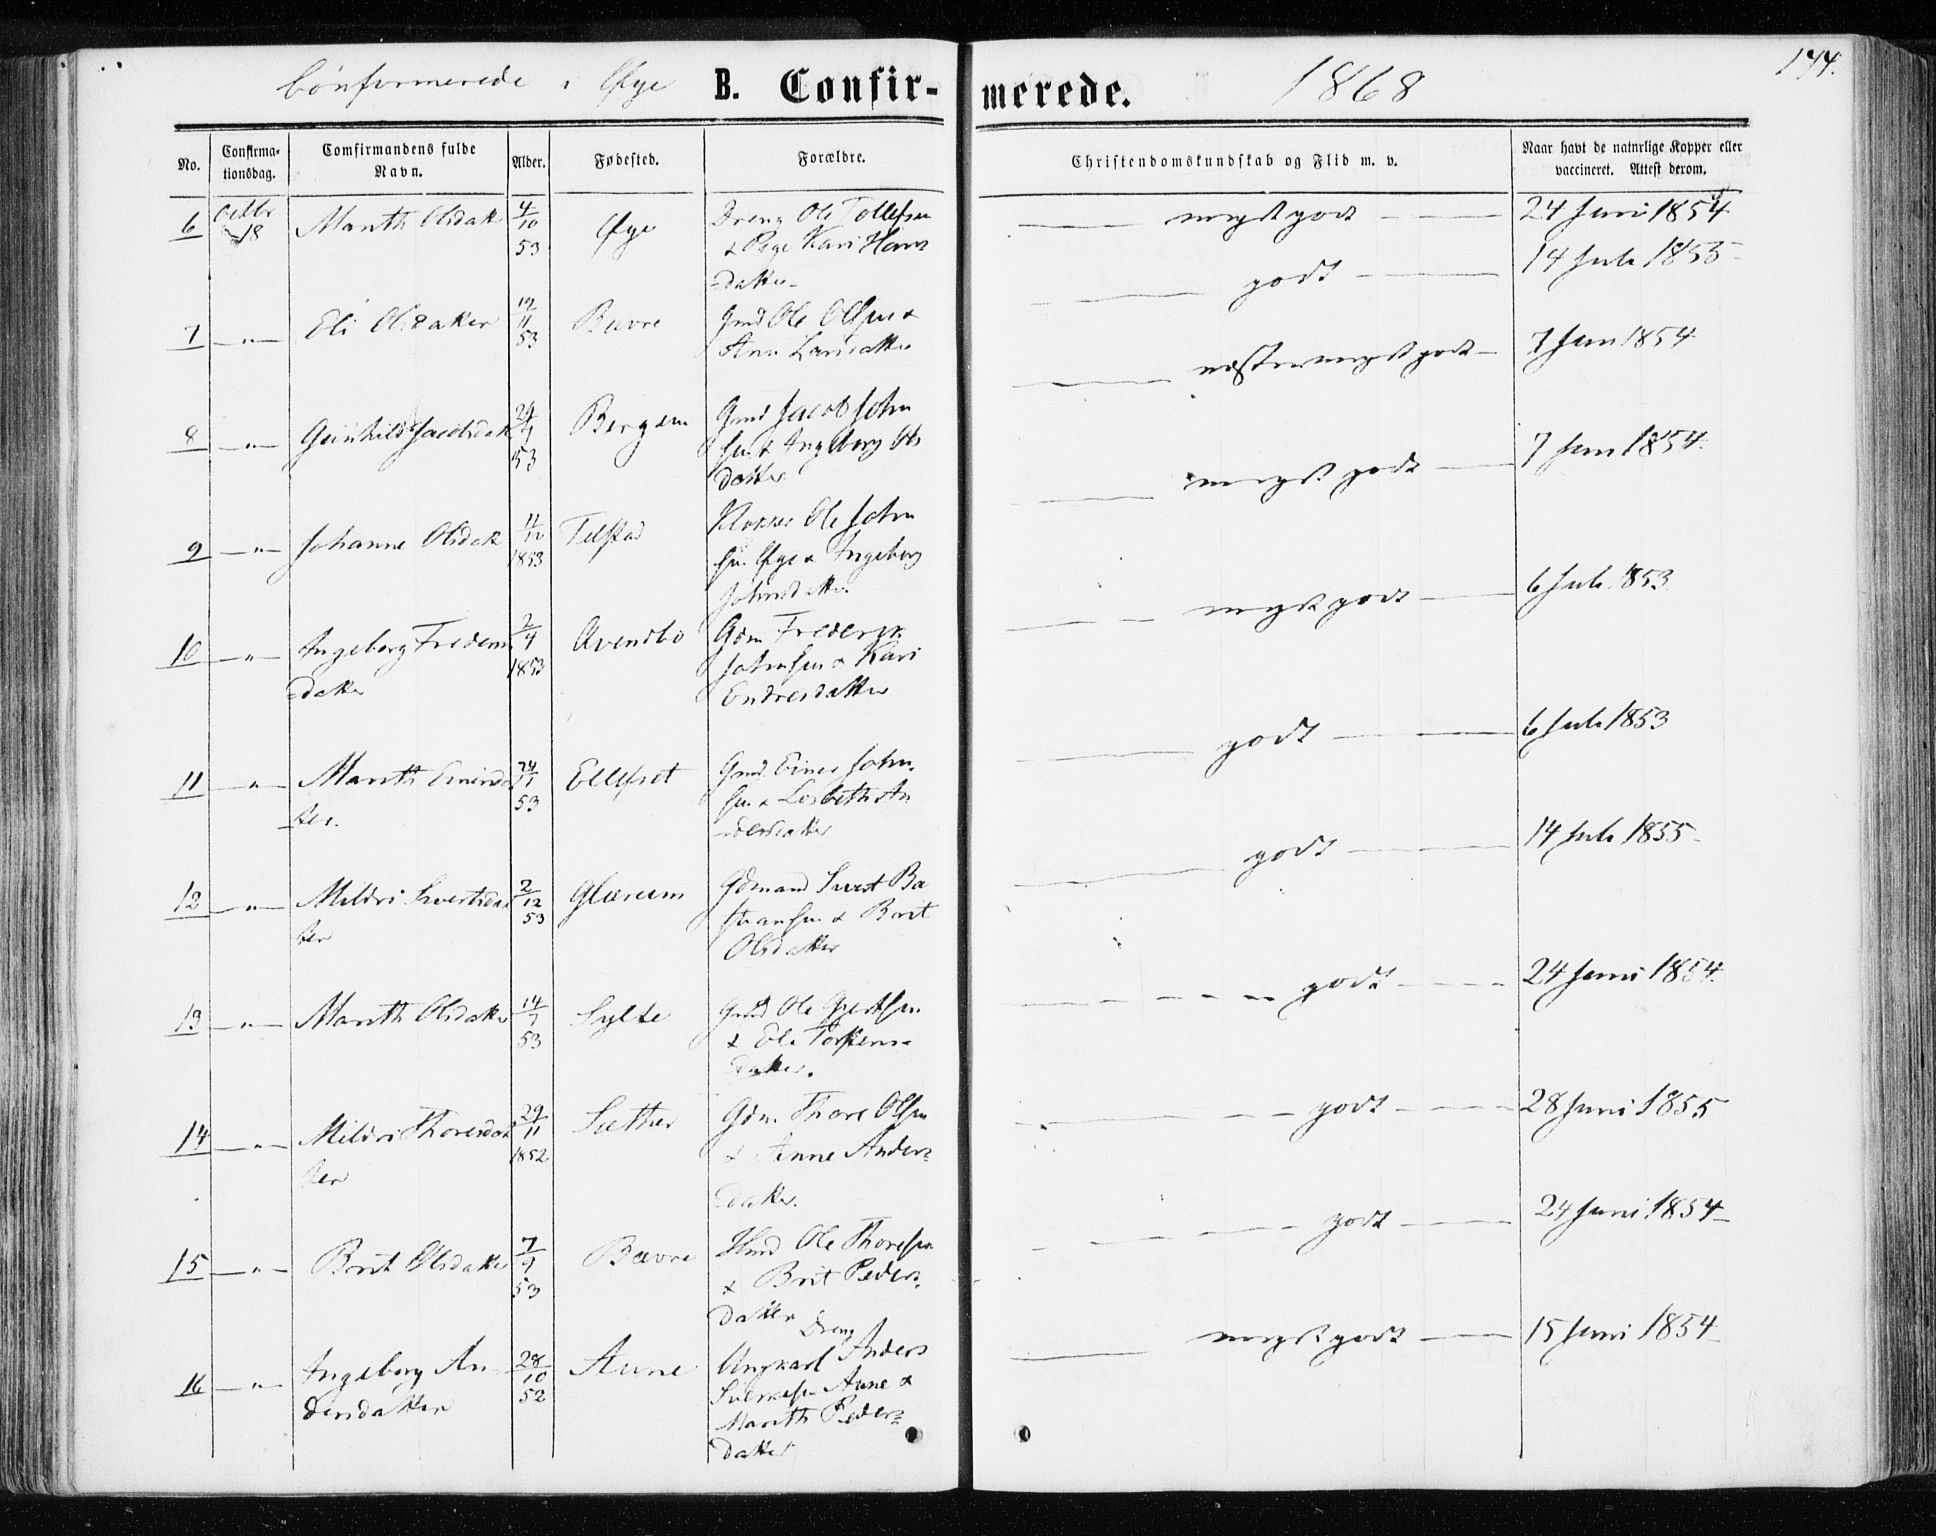 Confirmerede i Øye B. Confirmerede. 1868 144.
No. Confirmationsdag. Comfirmandens fulde Navn. Alder. Fødested. Forældre. Christendomskundskab og Flid m. v. Naar havt de naturlige Kopper eller vaccineret. Attest derom.
6 Octbr 18 Marith Olsdatt 4/10 53 Øye Dreng Ole Tollefsen
& Pige Kari Hans
-datter
meget godt 24 Juni 1854
7 — " — Eli Olsdatter 19/11 53 Bævre Gmd Ole Olsen &
Ane Larsdatter
godt 14 Juli 1855
8 — " — Gunhild Jacobsdatt 53 Bergem Gmd Jacob John
sen & Ingeborg Ols
datter
7 Juni 1854
9 — " — Johanne Olsdatt 11/10 1853 Telstad Klokker Ole John
sen Øye & Ingeborg
Johnsdatter
meget godt 7 Juni 1854
10 — " — Ingeborg Frederiks
-datter
2/4 1853 Qvendbo Gdm Frederik
Johnsen & Kari
Endresdatter
meget godt 6 Juli 1853
11 — " — Marith Einersdat
ter.
53 Ellefset Gmd. Einer John-
sen & Lisbeth An
-dersdatter
godt 6 Juli 1853
12 — " — Mildri Sivertsdat
ter
2/12 53 Glærum Gdmand Sivert Ba
stiansen & Brit
Olsdatter
godt 14 Juli 1855
13 — " — Marith Olsdatter 14/7 53 Sylte Gmd Ole Gjertsen
& Eli Torstens-
datter.
godt 24 Juni 1854
14 — " — Mildri Thoresdat
ter
29/11 1852 Sæther Gdm. Thore Olsen
& Anne Anders-
datter.
godt 28 Juni 1855
15 — " — Brit Olsdatter 7/9 53 Bævre Hmd Ole Thoresen
& Brit Peders-
datter
godt 24 Juni 1854
16 — " — Ingeborg An-
dersdatter
28/10 52 Aune Dreng
Ungkarl Anders
Aune &
Marith Peders-
datter
meget godt 15 Juni 1854